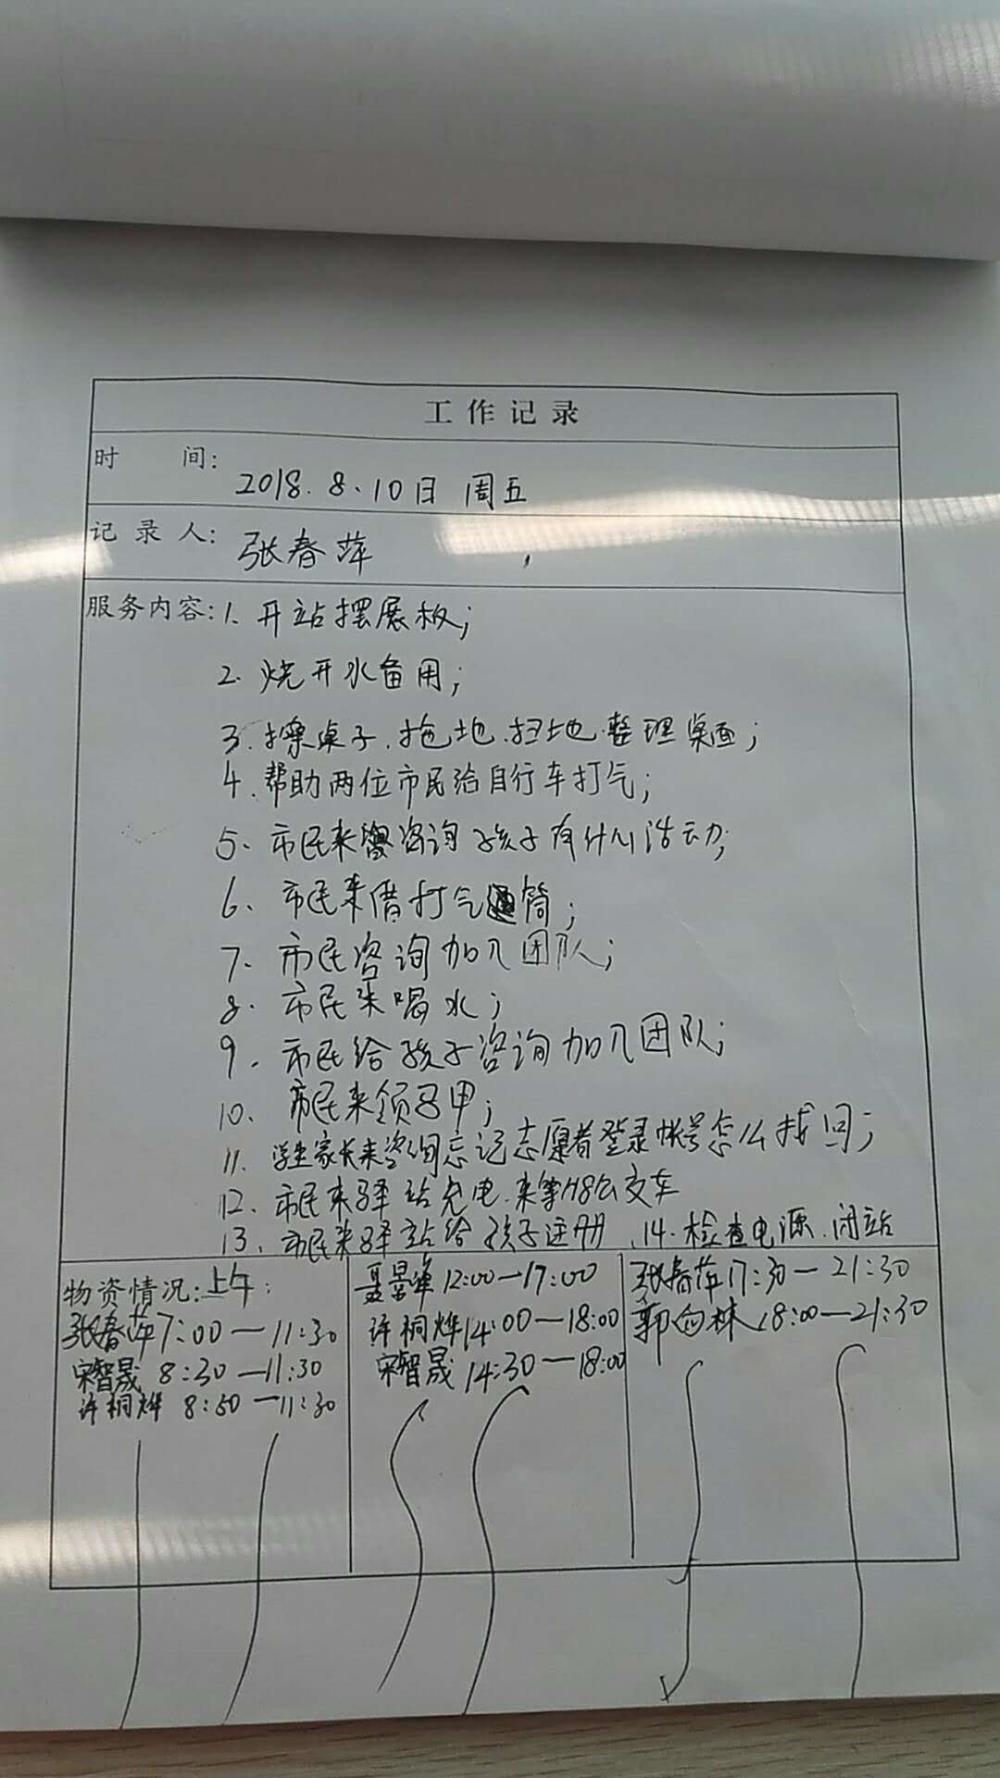 工作记录
时 间: 2018.8.10日 周五
记录人: 张春萍
服务内容: 1. 开站摆展板;
2. 烧开水备用;
3. 擦桌子.拖地.扫地.整理桌面;
4. 帮助两位市民给自行车打气;
5. 市民来咨询孩子有什么活动;
6. 市民来借打气筒;
7. 市民咨询加入团队;
8. 市民来喝水;
9. 市民给孩子咨询加入团队;
10. 市民来领马甲;
11. 学生家长来咨询忘记志愿者登录帐号怎么找回;
12. 市民来驿站充电.来等118公交车
13. 市民来驿站给孩子注册.14.检查电源.闭站
物资情况: 上午:
张春萍7:00—11:30
宋智晟 8:30—11:30
许桐烨 8:50—11:30
12:00—17:00
许桐烨14:00—18:00
宋智晟 14:30—18:00
张春萍17:30—21:30
郭向林18:00—21:30